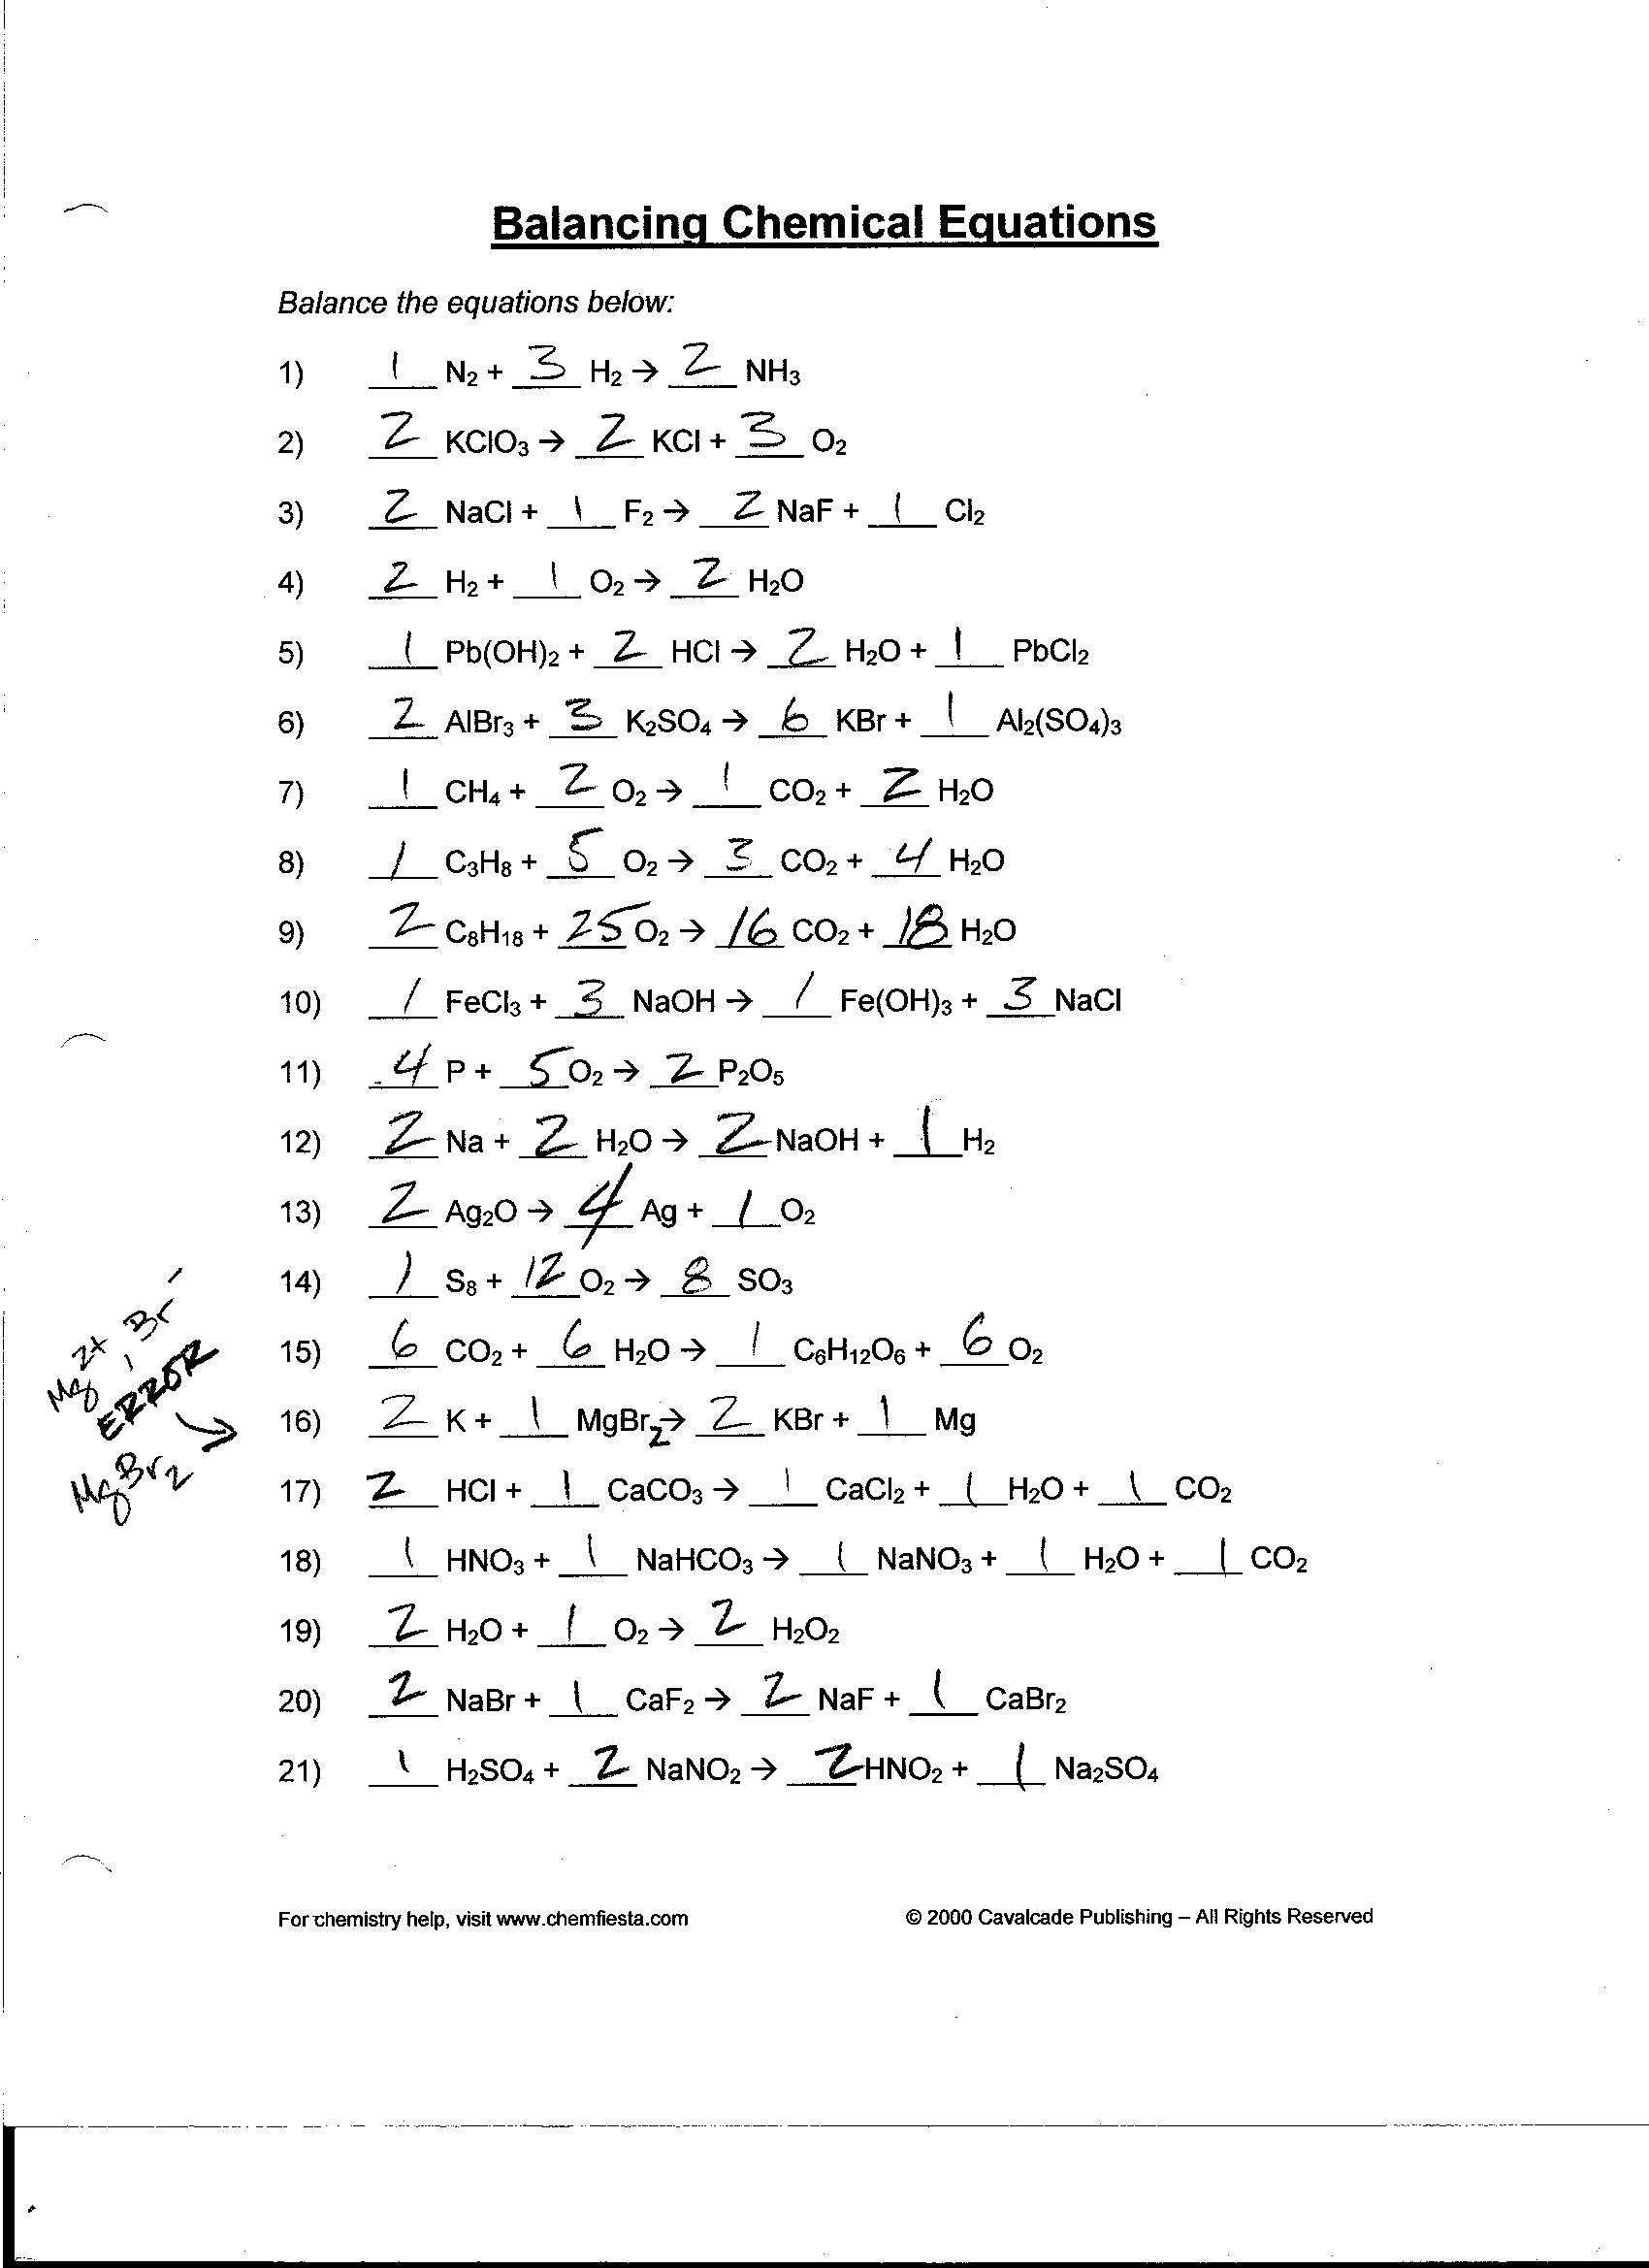 Balancing Chemical Equations
Balance the equations below:
1) 1 N2 + 3 H2 → 2 NH3
2) 2 KClO3 → 2 KCl + 3 O2
3) 2 NaCl + 1 F2 → 2 NaF + 1 Cl2
4) 2 H2 + 1 O2 → 2 H2O
5) 1 Pb(OH)2 + 2 HCl → 2 H2O + 1 PbCl2
6) 2 AlBr3 + 3 K2SO4 → 6 KBr + 1 Al2(SO4)3
7) 1 CH4 + 2 O2 → 1 CO2 + 2 H2O
8) 1 C3H8 + 5 O2 → 3 CO2 + 4 H2O
9) 2 C8H18 + 25 O2 → 16 CO2 + 18 H2O
10) 1 FeCl3 + 3 NaOH → 1 Fe(OH)3 + 3 NaCl
11) 4 P + 5 O2 → 2 P2O5
12) 2 Na + 2 H2O → 2 NaOH + 1 H2
13) 2 Ag2O → 4 Ag + 1 O2
14) 1 S8 + 12 O2 → 8 SO3
15) 6 CO2 + 6 H2O → 1 C6H12O6 + 6 O2
Mg2+, Br-
ERROR
MgBr2
16) 2 K + 1 MgBr2 → 2 KBr + 1 Mg
17) 2 HCl + 1 CaCO3 → 1 CaCl2 + 1 H2O + 1 CO2
18) 1 HNO3 + 1 NaHCO3 → 1 NaNO3 + 1 H2O + 1 CO2
19) 2 H2O + 1 O2 → 2 H2O2
20) 2 NaBr + 1 CaF2 → 2 NaF + 1 CaBr2
21) 1 H2SO4 + 2 NaNO2 → 2 HNO2 + 1 Na2SO4
For chemistry help, visit www.chemfiesta.com © 2000 Cavalcade Publishing – All Rights Reserved